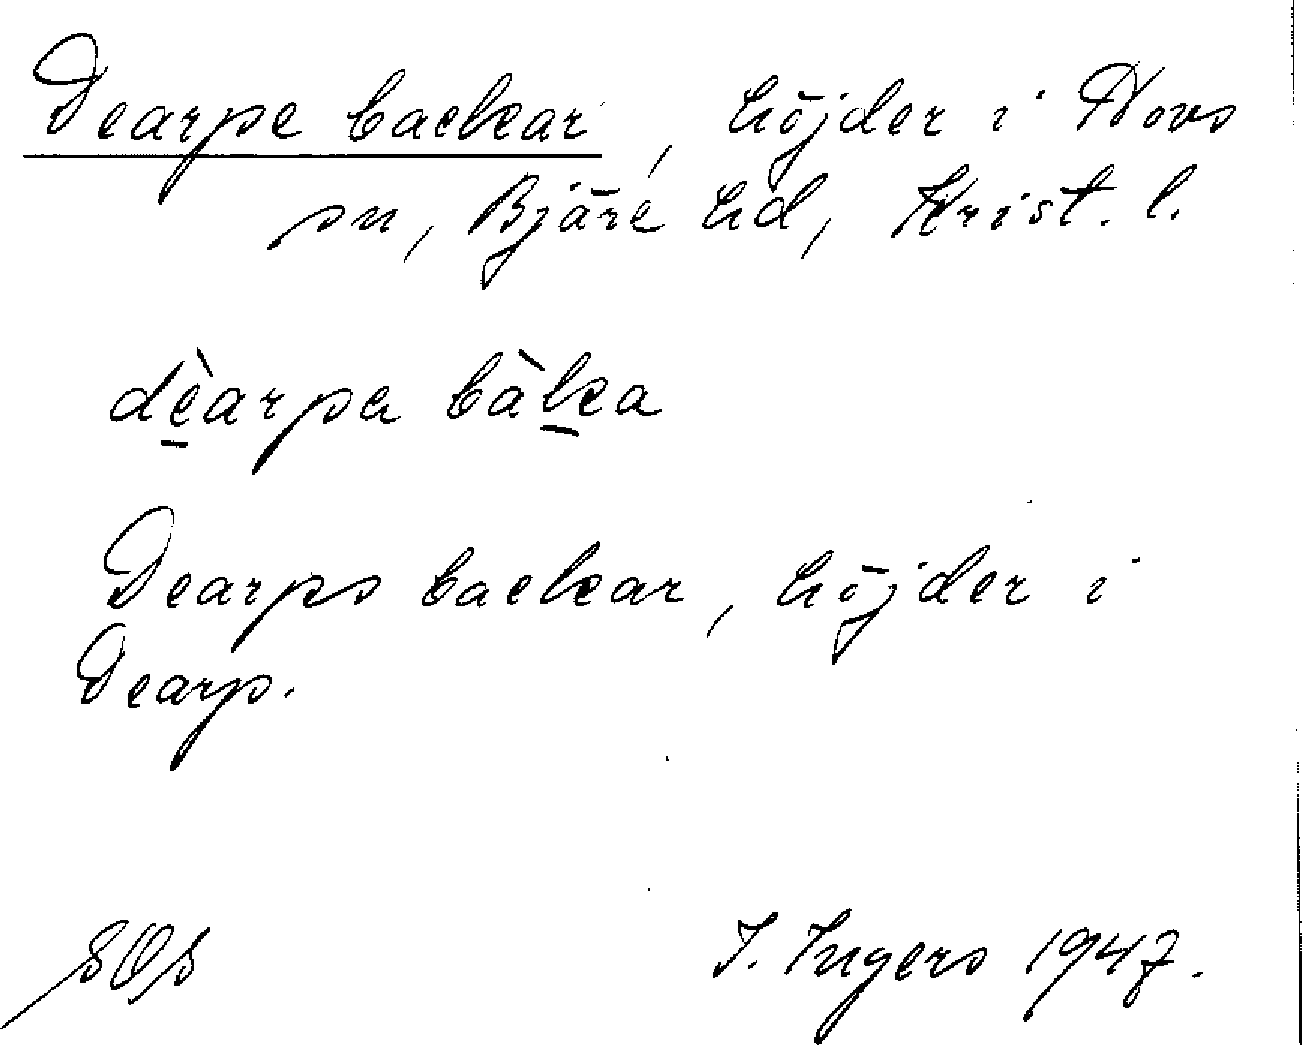 Dearpe backar, höjder i Hovs
sn, Bjäre hd, Krist. l.
dèarpa bàka
Dearps backar, höjder i
Dearp.
SOS I. Ingers 1947.